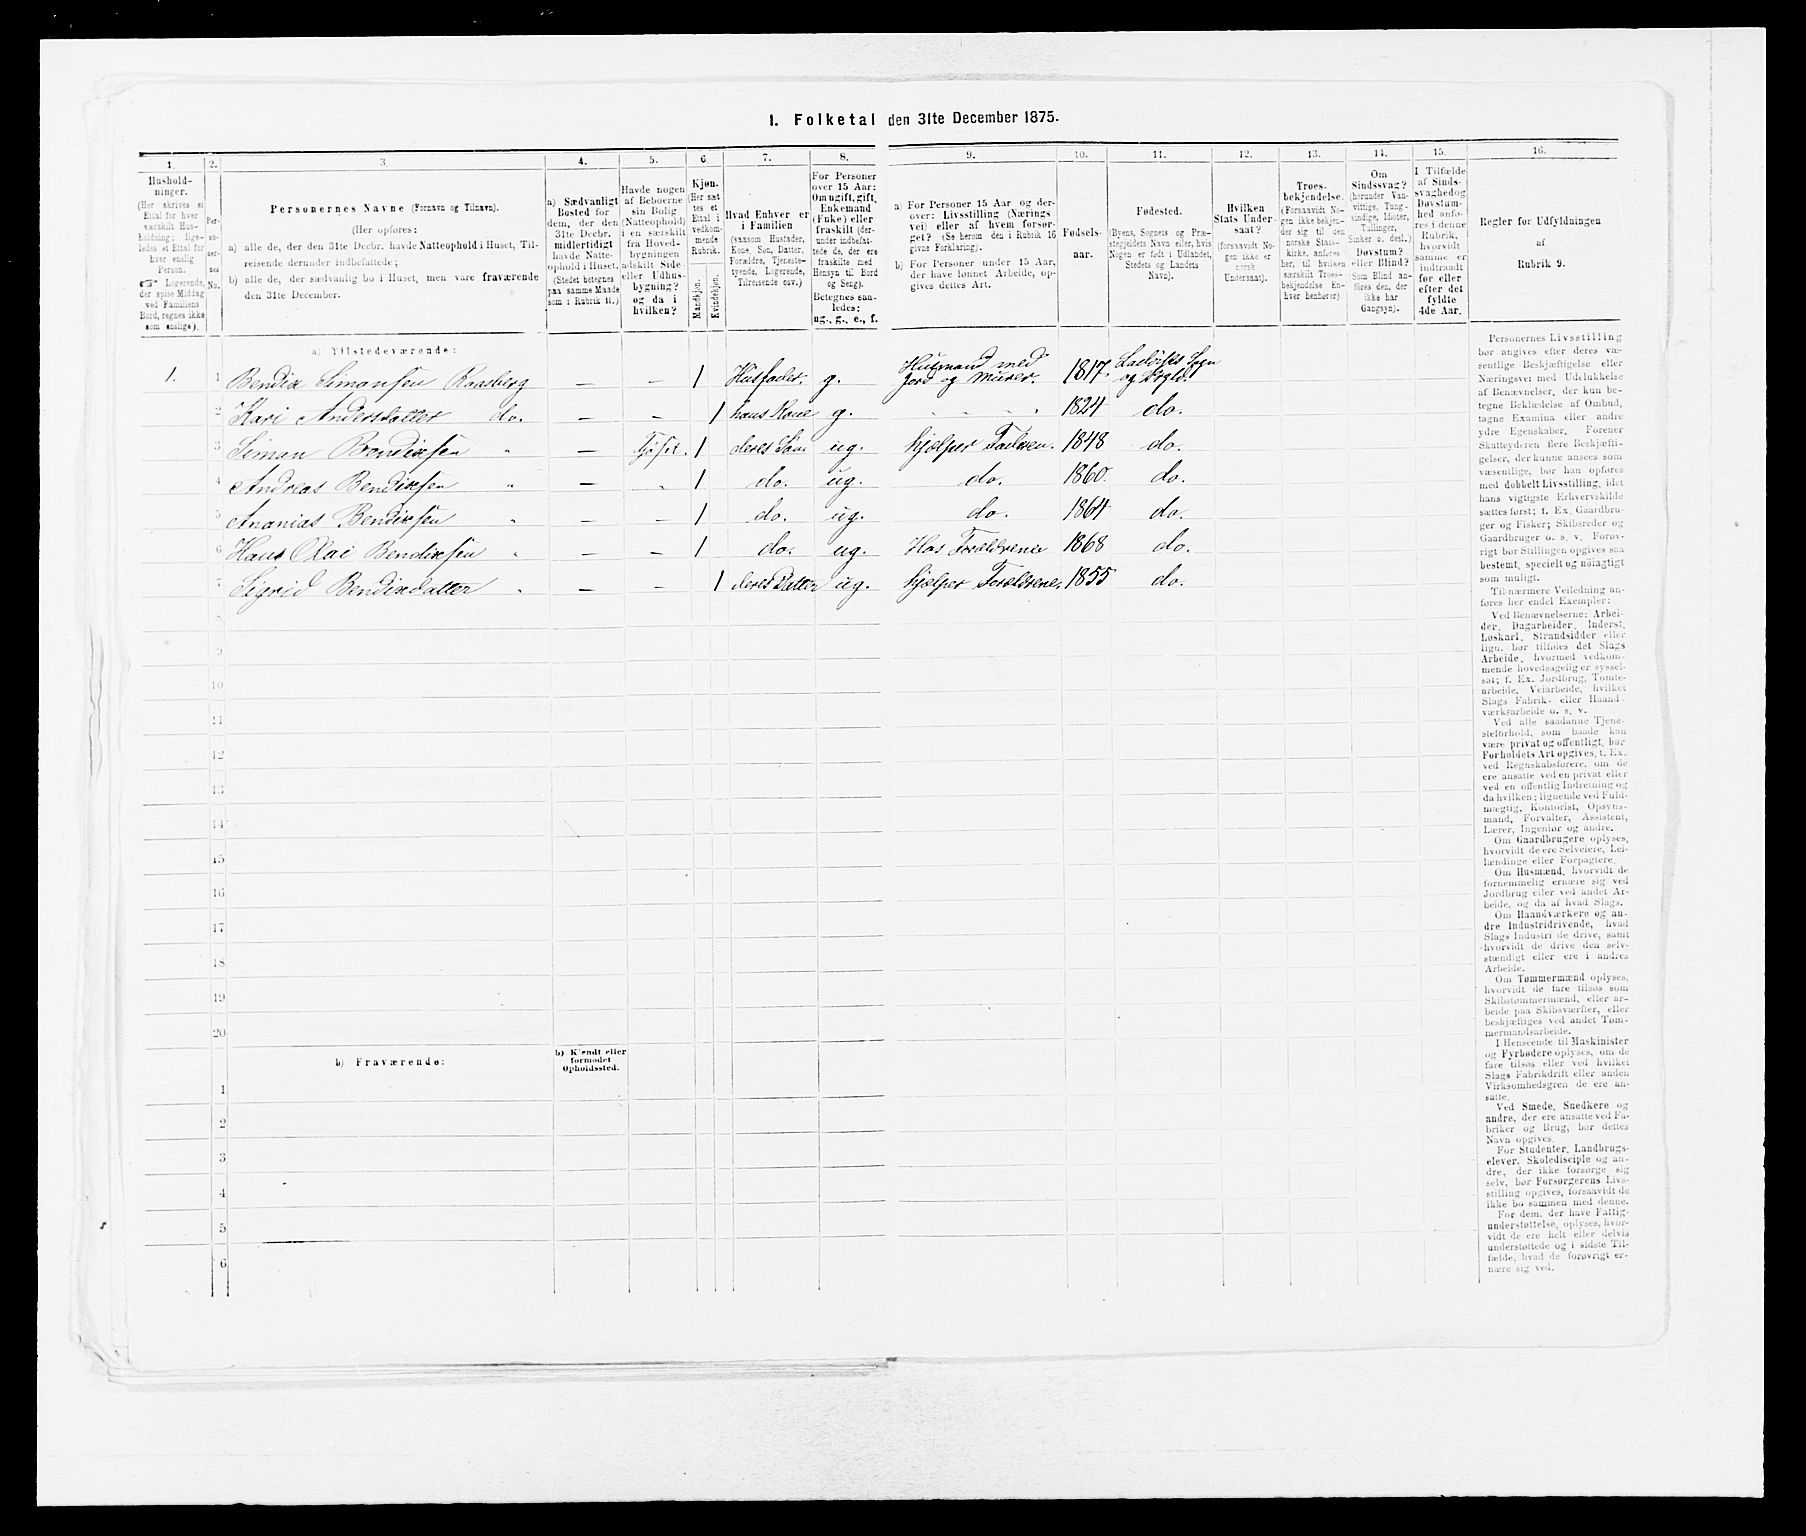 1. Folketal den 31te December 1875.
1. 2. 3. 4. 5. 6 7. 8. 9. 10. 11. 12. 13. 14. 15. 16.
Hushold-
ninger.
(Her skrives et
Ettal for hver
særskilt Hus-
holdning; lige-
ledes et Ettal for
hver enslig
Person.
☞ Logerende,
der spise Middag
ved Familiens
Bord, regnes ikke
som enslige).
Per-
so-
ner-
nes
No.
Personernes Navne (Fornavn og Tilnavn).
(Her opføres:
a) alle de, der den 31te Decbr. havde Natteophold i Huset, Til-
reisende derunder indbefattede;
b) alle de, der sædvanlig bo i Huset, men vare fraværende
den 31te December.
a) Sædvanligt
Bosted for
dem, der den
31te Decbr.
midlertidigt
havde Natte-
ophold i Huset.
(Stedet betegnes
paa samme Maade
som i Rubrik 11.)
Havde nogen
af Beboerne
sin Bolig
(Natteophold)
i en særskilt
fra Hoved-
bygningen
adskilt Side-
eller Udhus-
bygning?
og da i
hvilken?
Kjøn.
(Her sæt
tes et
Ettal i
vedkom-
mende
Rubrik.
Mandkjøn.
Kvindekjøn.
Hvad Enhver er
i Familien
(saasom Husfader,
Kone, Søn, Datter,
Forældre, Tjeneste-
tyende, Logerende,
Tilreisende osv.)
For Personer
over 15 Aar:
Om ugift, gift,
Enkemand
(Enke) eller
fraskilt (der-
under indbefat-
tede de, der ere
fraskilte med
Hensyn til Bord
og Seng).
Betegnes saa-
ledes:
ug., g., e., f.
a) For Personer 15 Aar og der-
over: Livsstilling (Nærings
vei) eller af hvem forsør-
get? (Se herom den i Rubrik 16
givne Forklaring).
b) For Personer under 15 Aar,
der have lønnet Arbeide, op-
gives dettes Art.
Fødsels-
aar.
Fødested.
(Byens, Sognets og Præ-
stegjeldets Navn eller, hvis
Nogen er født i Udlandet,
Stedets og Landets
Navn).
Hvilken
Stats Under-
saat?
(forsaavidt No-
gen ikke er
norsk
Undersaat).
Troes-
bekjendelse.
(Forsaavidt No-
gen ikke bekjen-
der sig til den
norske Stats-
kirke, anføres
her, til hvilken
særskilt Troes-
bekjendelse En-
hver henhører).
Om
Sindssvag?
(herunder Van-
vittige, Tung-
sindige, Idioter,
Tullinger,
Sinker o. desl.)
Døvstum?
eller Blind?
(Som Blind an-
føres den, der
ikke har
Gangsyn).
I Tilfælde
af Sinds-
svaghed og
Døvstum-
hed anfø-
res i denne
Rubrik,
hvorvidt
samme er
indtraadt
før eller
efter det
fyldte
4de Aar.
Regler for Udfyldningen
af
Rubrik 9.
a) Tilstedeværende:
1. 1 Bendix Simonsen Raasberg — — 1 Husfader. g. Husmand med Jord og Murer. 1817. Ladviks Sogn og Prgld.
2 Kari Andersdatter do. — — 1 hans Kone g. " " " " 1824 do.
3 Simon Bendixsen " — 1 deres Søn ug. hjælper Faderen. 1848 do.
4 Andreas Bendixsen " — " 1 do. ug. do. 1860. do.
5 Ananias Bendixsen " — — 1 do. ug. do. 1864 do.
6 Hans Olai Bendixsen " — — 1 do. ug. Hos Forældrene 1868 do.
7 Sigrid Bendixdatter " — — 1 deres Datter ug. hjelper Forældrene. 1855 do.
8
9
10
11
12
13
14
15
16
17
18
19
20
b) Fraværende:
b) Kjendt eller
formodet
Opholdssted.
1
2
3
4
5
6
Personernes Livsstilling
bør angives efter deres væ-
sentlige Beskjæftigelse eller
Næringsvei med Udelukkelse
af Benævnelser, der kun be-
tegne Beklædelse af Ombud,
tagne Examina eller andre
ydre Egenskaber. Forener
Skatteyderen flere Beskjæfti-
gelser, der kunne ansees som
væsentlige, bør han opføres
med dobbelt Livsstilling, idet
hans vigtigste Erhvervskilde
sættes først; f. Ex. Gaardbru-
ger og Fisker; Skibsreder og
Gaardbruger o. s. v. Forøv-
rigt bør Stillingen opgives saa
bestemt, specielt og nøiagtigt
som muligt.
Til nærmere Veiledning an-
føres her endel Exempler:
Ved Benævnelserne: Arbei-
der, Dagarbeider, Inderst,
Løskarl, Strandsidder eller
lign. bør tilføies det Slags
Arbeide, hvormed vedkom-
mende hovedsagelig er syssel-
sat; f. Ex. Jordbrug, Tomte-
arbeide, Veiarbeide, hvilket
Slags Fabrik- eller Haand-
værksarbeide o. s. v.
Ved alle saadanne Tjene-
steforhold, som baade kan
være privat og offentligt, bør
Forholdets Art opgives, t. Ex.
ved Regnskabsførere, om de
ere ansatte ved en privat eller
ved en offentlig Indretning og
da hvilken; lignende ved Fuld-
mægtig, Kontorist, Opsyns-
mand, Forvalter, Assistent,
Lærer, Ingeniør og andre.
Om Gaardbrugere oplyses,
hvorvidt de ere Selveiere, Lei-
lændinge eller Forpagtere.
Om Husmænd, hvorvidt de
fornemmelig ernære sig ved
Jordbrug eller ved andet Ar-
beide, og da af hvad Slags.
Om Haandværkere og an-
dre Industridrivende, hvad
Slags Industri de drive, samt
hvorvidt de drive den selv-
stændigt eller ere i andres
Arbeide.
Om Tømmermænd oplyses,
hvorvidt de fare tilsøs som
Skibstømmermænd, eller ar-
beide paa Skibsværfter, eller
beskjæftiges ved andet Tøm-
mermandsarbeide.
I Henseende til Maskinister
og Fyrbødere oplyses, om de
fare tilsøs eller ved hvilket
Slags Fabrikdrift eller anden
Virksomhedsgren de ere an-
satte.
Ved Smede, Snedkere og
andre, der ere ansatte ved Fa-
briker og Brug, bør dettes
Navn opgives.
For Studenter, Landbrugs-
elever, Skoledisciple og an-
dre, der ikke forsørge sig
selv, bør Forsørgerens Livs-
stilling opgives, forsaavidt de
ikke bo sammen med denne.
For dem, der have Fattig-
understøttelse, oplyses, hvor-
vidt de ere helt eller delvis
understøttede og i sidste Til-
fælde, hvad de forøvrigt er-
nære sig ved.